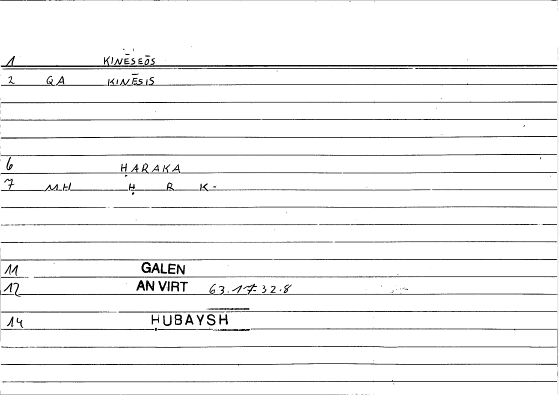 1 KINĒSEŌS
2 QA KINĒSIS
6 ḤARAKA
7 MH Ḥ R K-
11 GALEN
12 AN VIRT 63.17.32.8
14 ḤUBAYSH